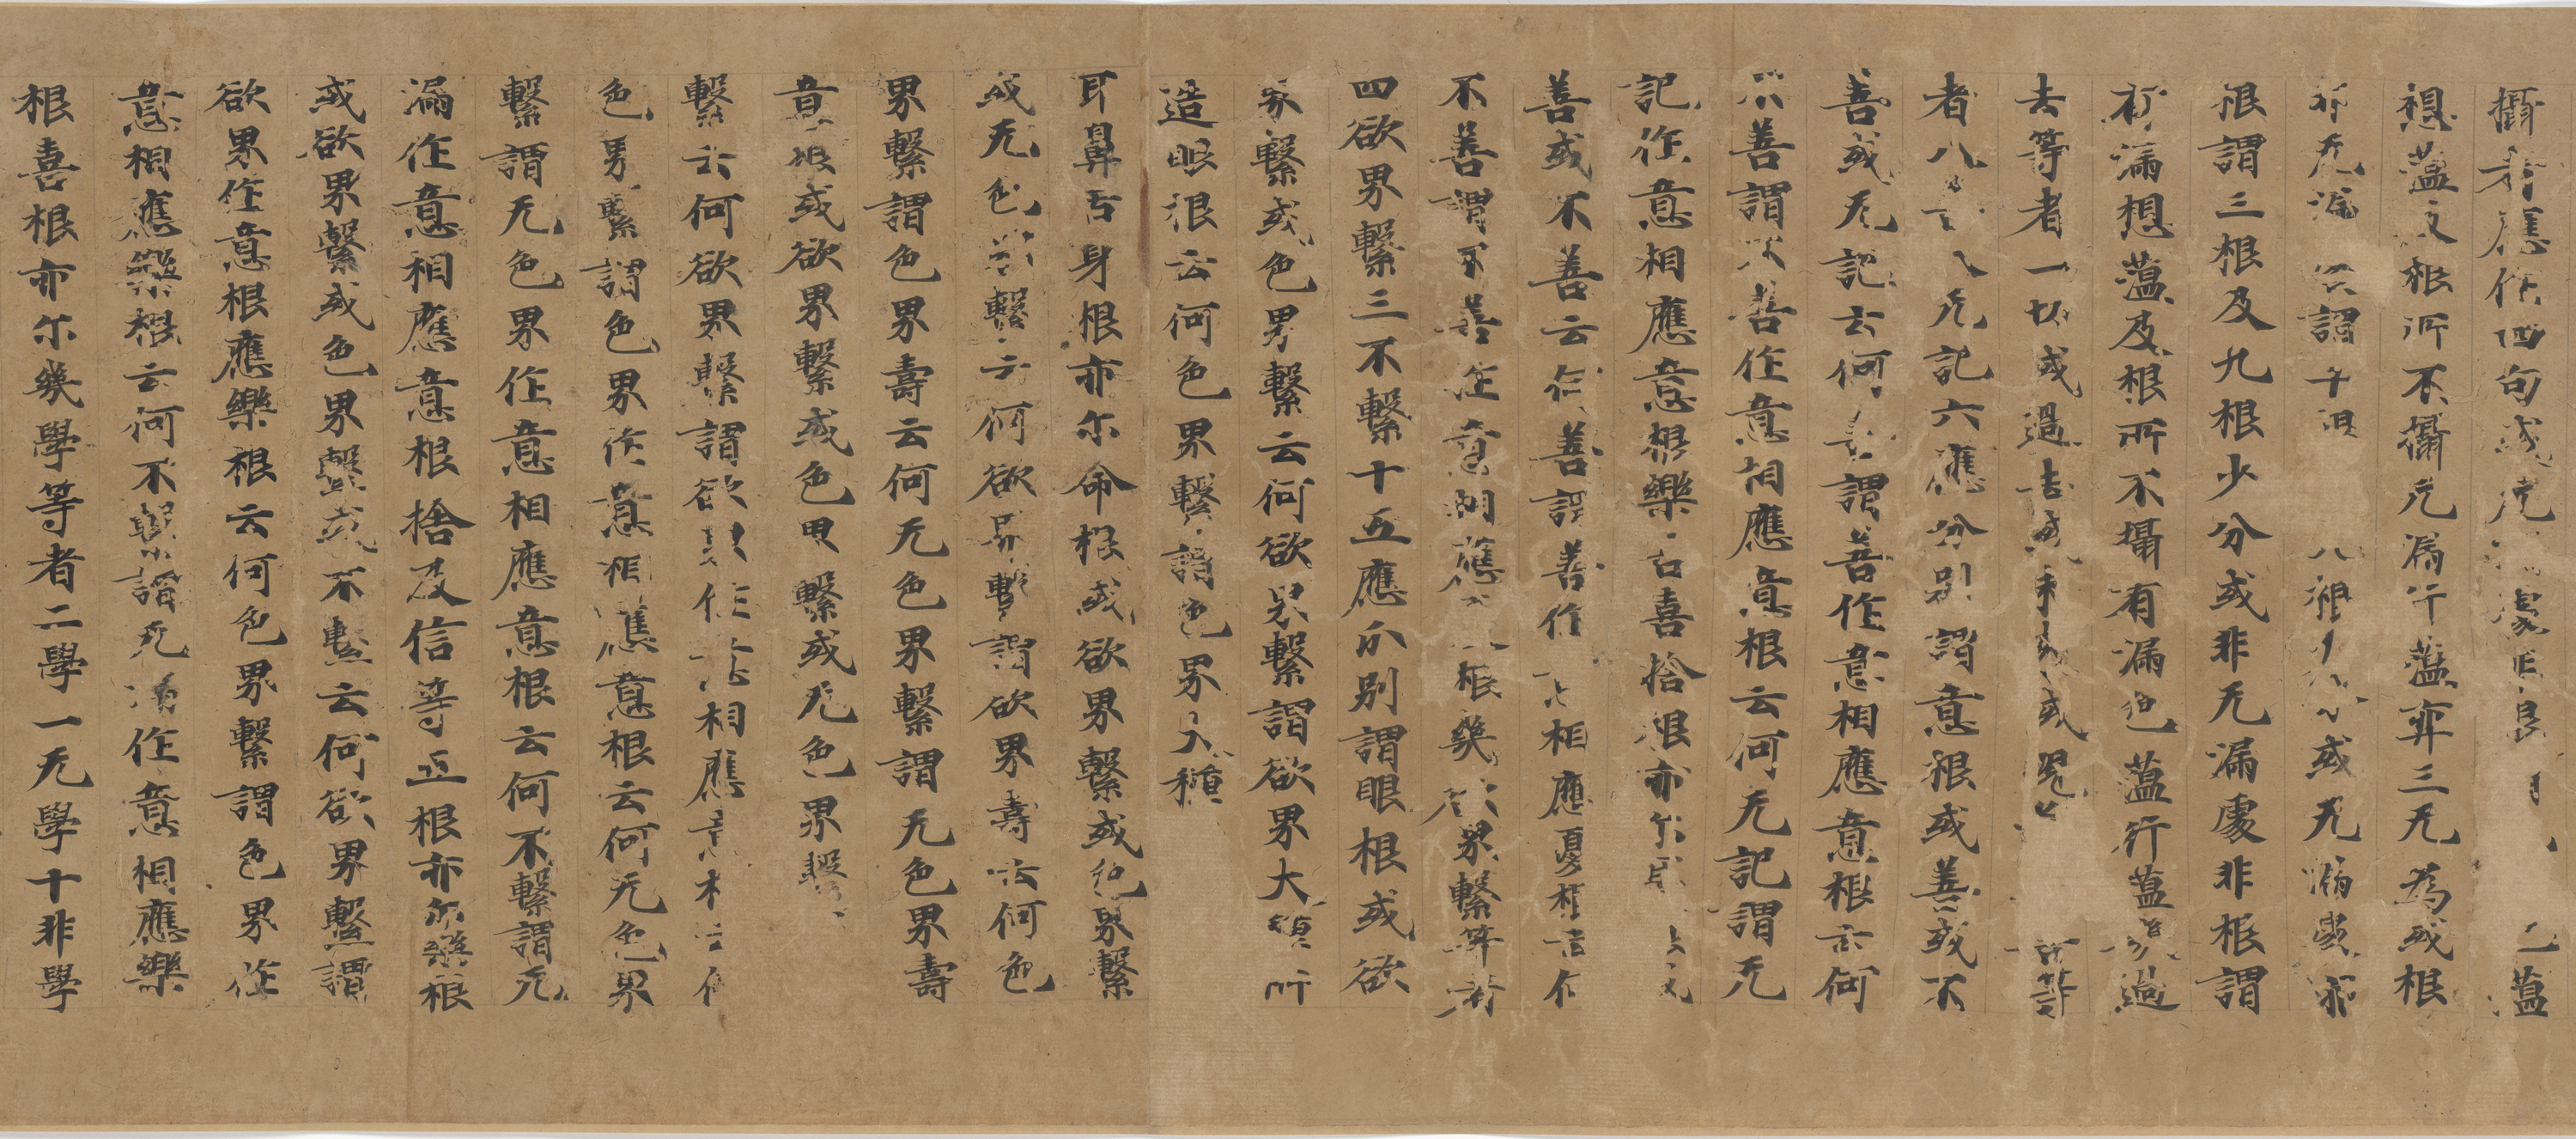 攝耶應作四句或
想蘊及根所不攝无漏行蘊弃三无為或根
亦无漏謂或无漏處亦
根謂三根及九根少分或非无漏處非根謂
有漏想蘊及根所不攝有漏色蘊行蘊幾過
去等者一切或過去或未或現等
者八无記六應分別謂意根或善或不
善或无記云何善謂善作意相應意根云何
不善謂不善作意相應意根云何无記謂无
記作意相應意根樂苦喜捨根亦尔
善或不善云何善謂善作相應憂根云何
不善謂不善作意相應根幾欲界繫等者
四欲界繫三不繫十五應分別謂眼根或欲
界繫或色界繫云何欲界繫謂欲界大種所
造眼根云何色界繫謂色界大種
耳鼻舌身根亦尔命根或欲界繫或色界繫
或无色界繫云何欲界繫謂欲界壽云何色
界繫謂色界壽云何无色界繫謂无色界壽
意根或欲界繫或色界繫或无色界繫
繫云何欲界繫謂欲界作意相應意根云何
色界繫謂色界作意相應意根云何无色界
繫謂无色界作意相應意根云何不繫謂无
漏作意相應意根捨及信等五根亦尔樂根
或欲界繫或色界繫或不繫云何欲界繫謂
欲界作意根應樂根云何色界繫謂色界作
意相應樂根云何不繫謂无漏作意相應樂
根喜根亦尔幾學等者二學一无學十非學